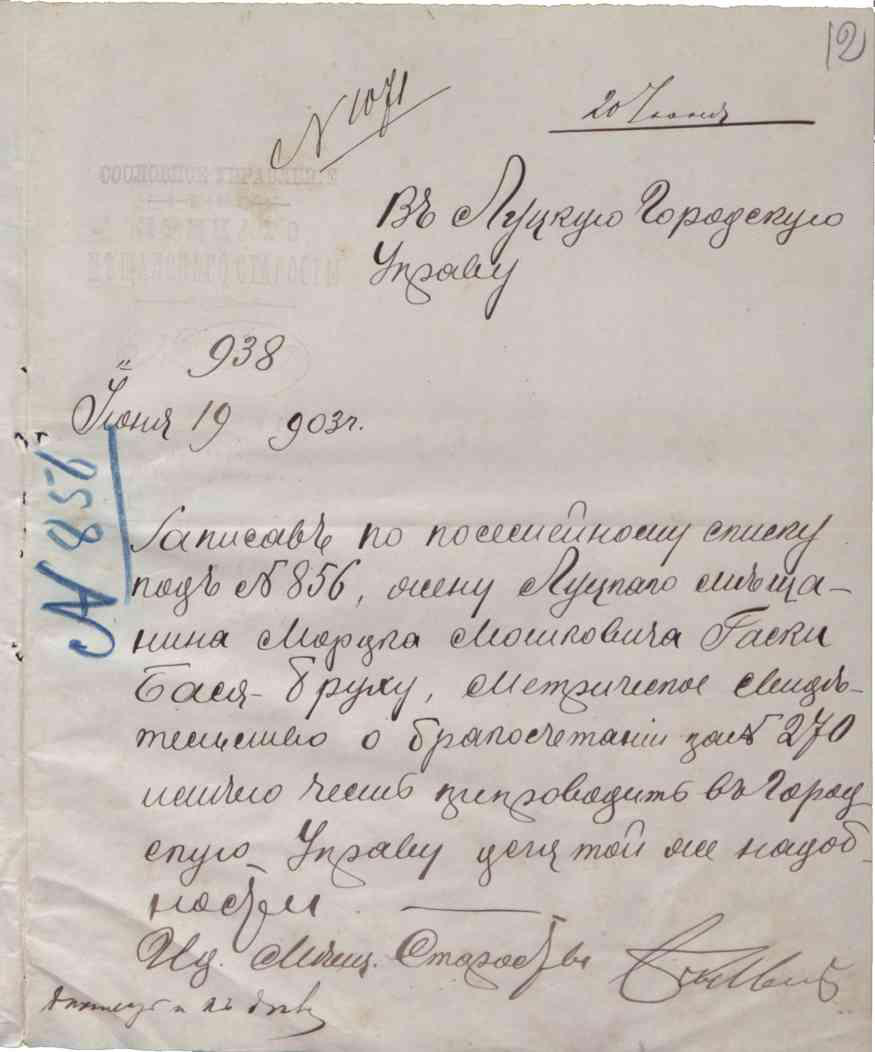 12
N 1071
20 Іюня
Въ Луцкую Городскую
Управу
938
Іюня 19 903 г.
N 856
Записавъ по посемейному списку
подъ № 856, жену Луцкаго мѣща-
нина Мордка Мошковича Гаски
Бася-Бруху, метрическое свидѣ-
тельство о бракосочетаніи за № 270
имѣю честь препроводить въ Город-
скую Управу для той же надоб-
ности
Ид. Мѣщ. Старосты
СОСЛОВНОЕ УПРАВЛЕНІЕ